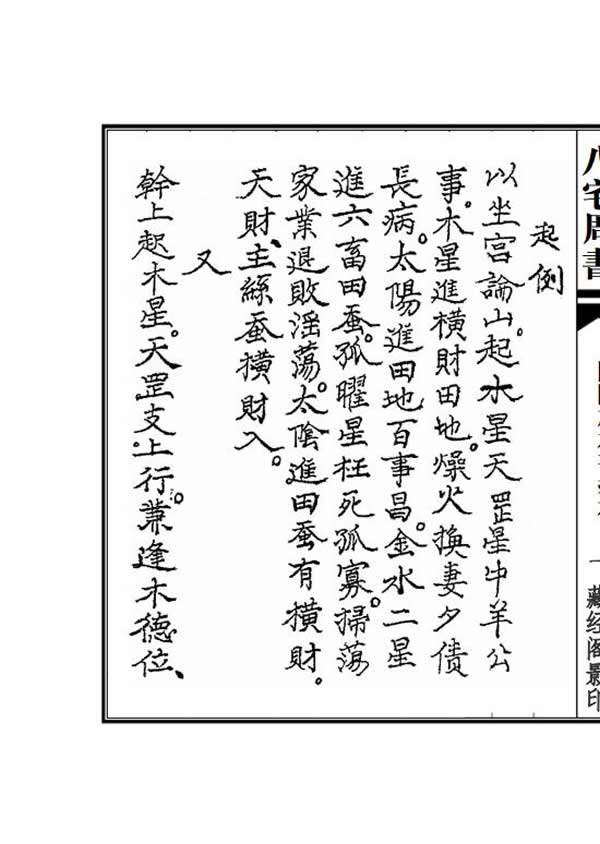 八宅周書
藏经阁影印
起例
以坐宮論山。起水星天罡星中羊公
事。木星進橫財田地。燥火換妻夕債
長病。太陽進田地百事昌。金水二星
進六畜田蚕。孤曜星枉死孤寡。掃荡
家業退敗淫荡。太陰進田蚕有横財。
天財、主絲蚕横財入。
又
幹上起木星。天罡支上行。兼逢木德位、